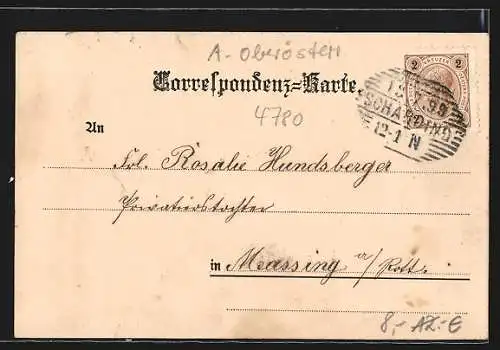 A-Oberösterr
Correspondenz=Karte.
2 KREUZER 2
1 5.7.99
SCHÄRDING
12-1 N
4780
An
Frl. Rosalie Hundsberger
Privatierstochter
in Massing a/Rott.
8,- AZ-E